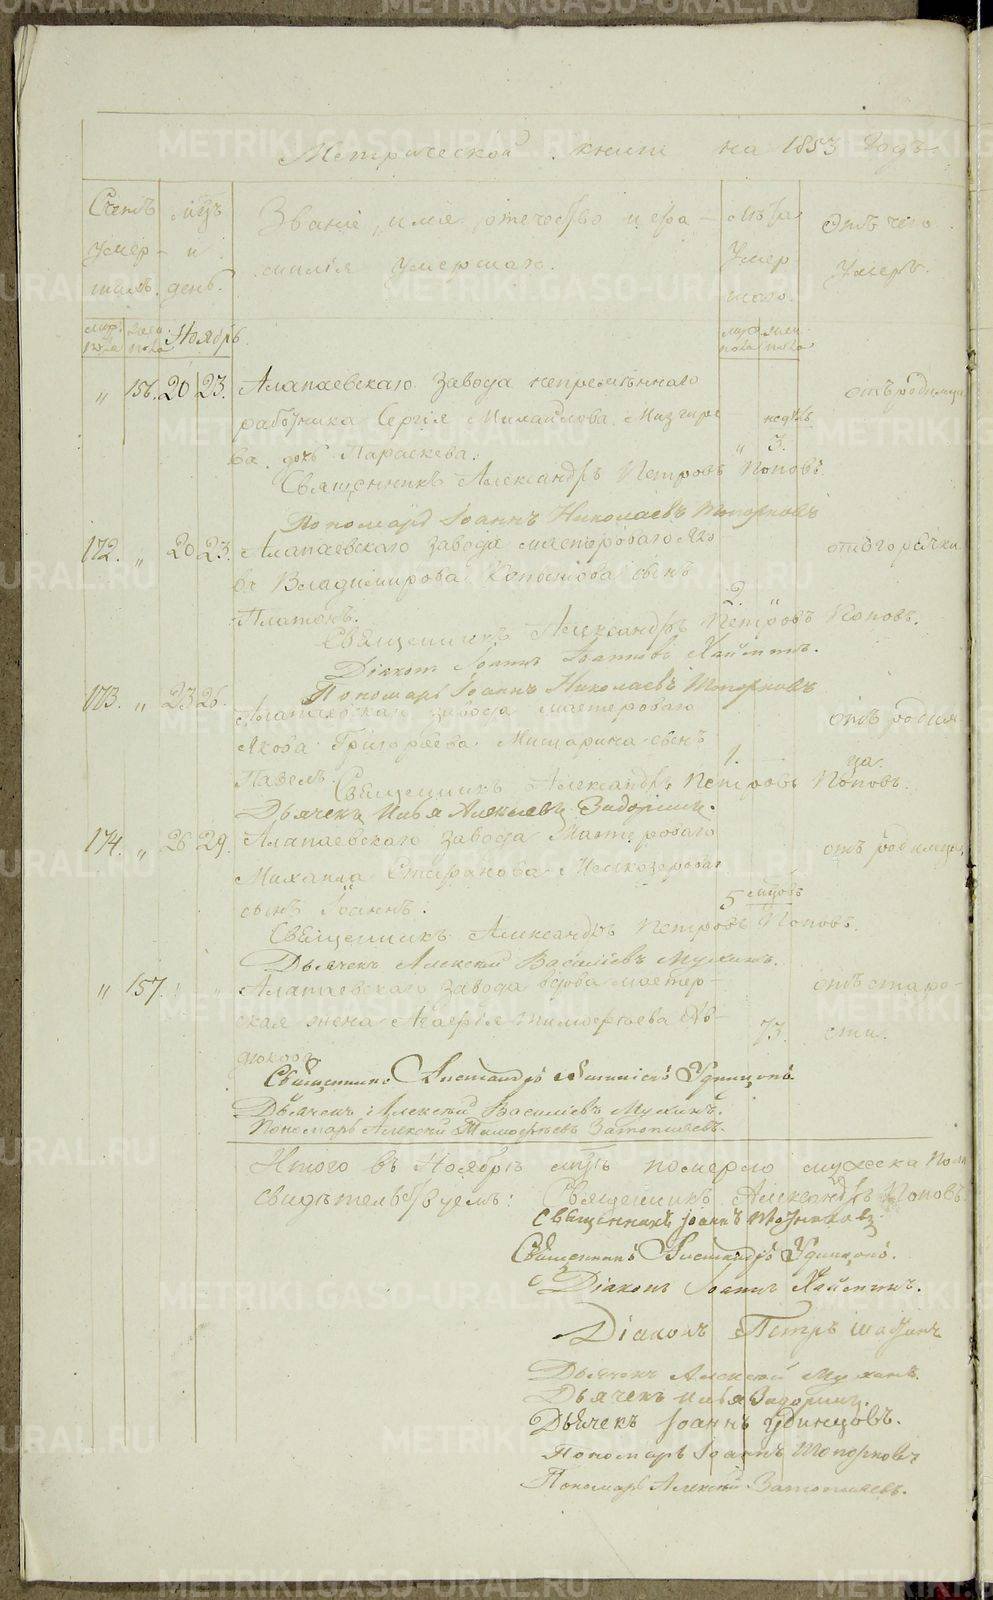 Метрической книги на 1853 Годъ
Счетъ умер-шихъ. | м͠цъ и день. | Званіе, имя, отечество и фа-милія умершаго. | Лѣта Умер-шаго. | Отъ чего умеръ.
муж. пола | жен. пола | Ноябрь | муж. пола | жен. пола
„ 156. 20 23. Алапаевскаго завода непремѣннаго отъ родимца
работника Сергія Михайлова Мизгире нед͠ль
ва дочь Параскева. „ 3.
Священникъ Александръ Петровъ Поповъ.
Пономарь Іоаннъ Николаевъ Топорковъ
172. „ 20 23. Алапаевскаго завода мастероваго Яко отъ горячки
ва Владимирова сынъ
Платонъ. 2. „
Священникъ Александръ Петровъ Поповъ.
Діаконъ Іоаннъ Іоанновъ
Пономарь Іоаннъ Николаевъ Топорковъ
173. „ 23 26. Алапаевскаго завода мастероваго отъ родим-
Якова Григорьева Мишарина сынъ 1. ца.
Павелъ. Священникъ Александръ Петровъ Поповъ.
Дьячекъ Илья Алексѣевъ Задоринъ.
174. „ 26 29. Алапаевскаго завода Мастероваго отъ родимца
Михаила сынъ Іоаннъ. 5 мцовъ
Священникъ Александръ Петровъ Поповъ.
Дьячекъ Алексѣй Васильевъ Мухинъ.
„ 157. „ „ Алапаевскаго завода вдова мастер- отъ старо-
ская жена Агафія Тимофѣева 73. сти.
Священникъ Александръ Удинцовъ.
Дьячекъ Алексѣй Васильевъ Мухинъ.
Пономарь Алексѣй Тимофѣевъ
Итого въ Ноябрѣ м͠цѣ померло мужеска пола
свидѣтельствуемъ: Священникъ Александръ Поповъ
Священникъ Іоаннъ
Священникъ Александръ Удинцовъ.
Діаконъ Іоаннъ
Діаконъ Петръ
Дьячекъ Алексѣй Мухинъ.
Дьячекъ Илья Задоринъ.
Дьячекъ Іоаннъ Удинцовъ.
Пономарь Іоаннъ Топорковъ
Пономарь Алексѣй
METRIKI.GASO-URAL.RU